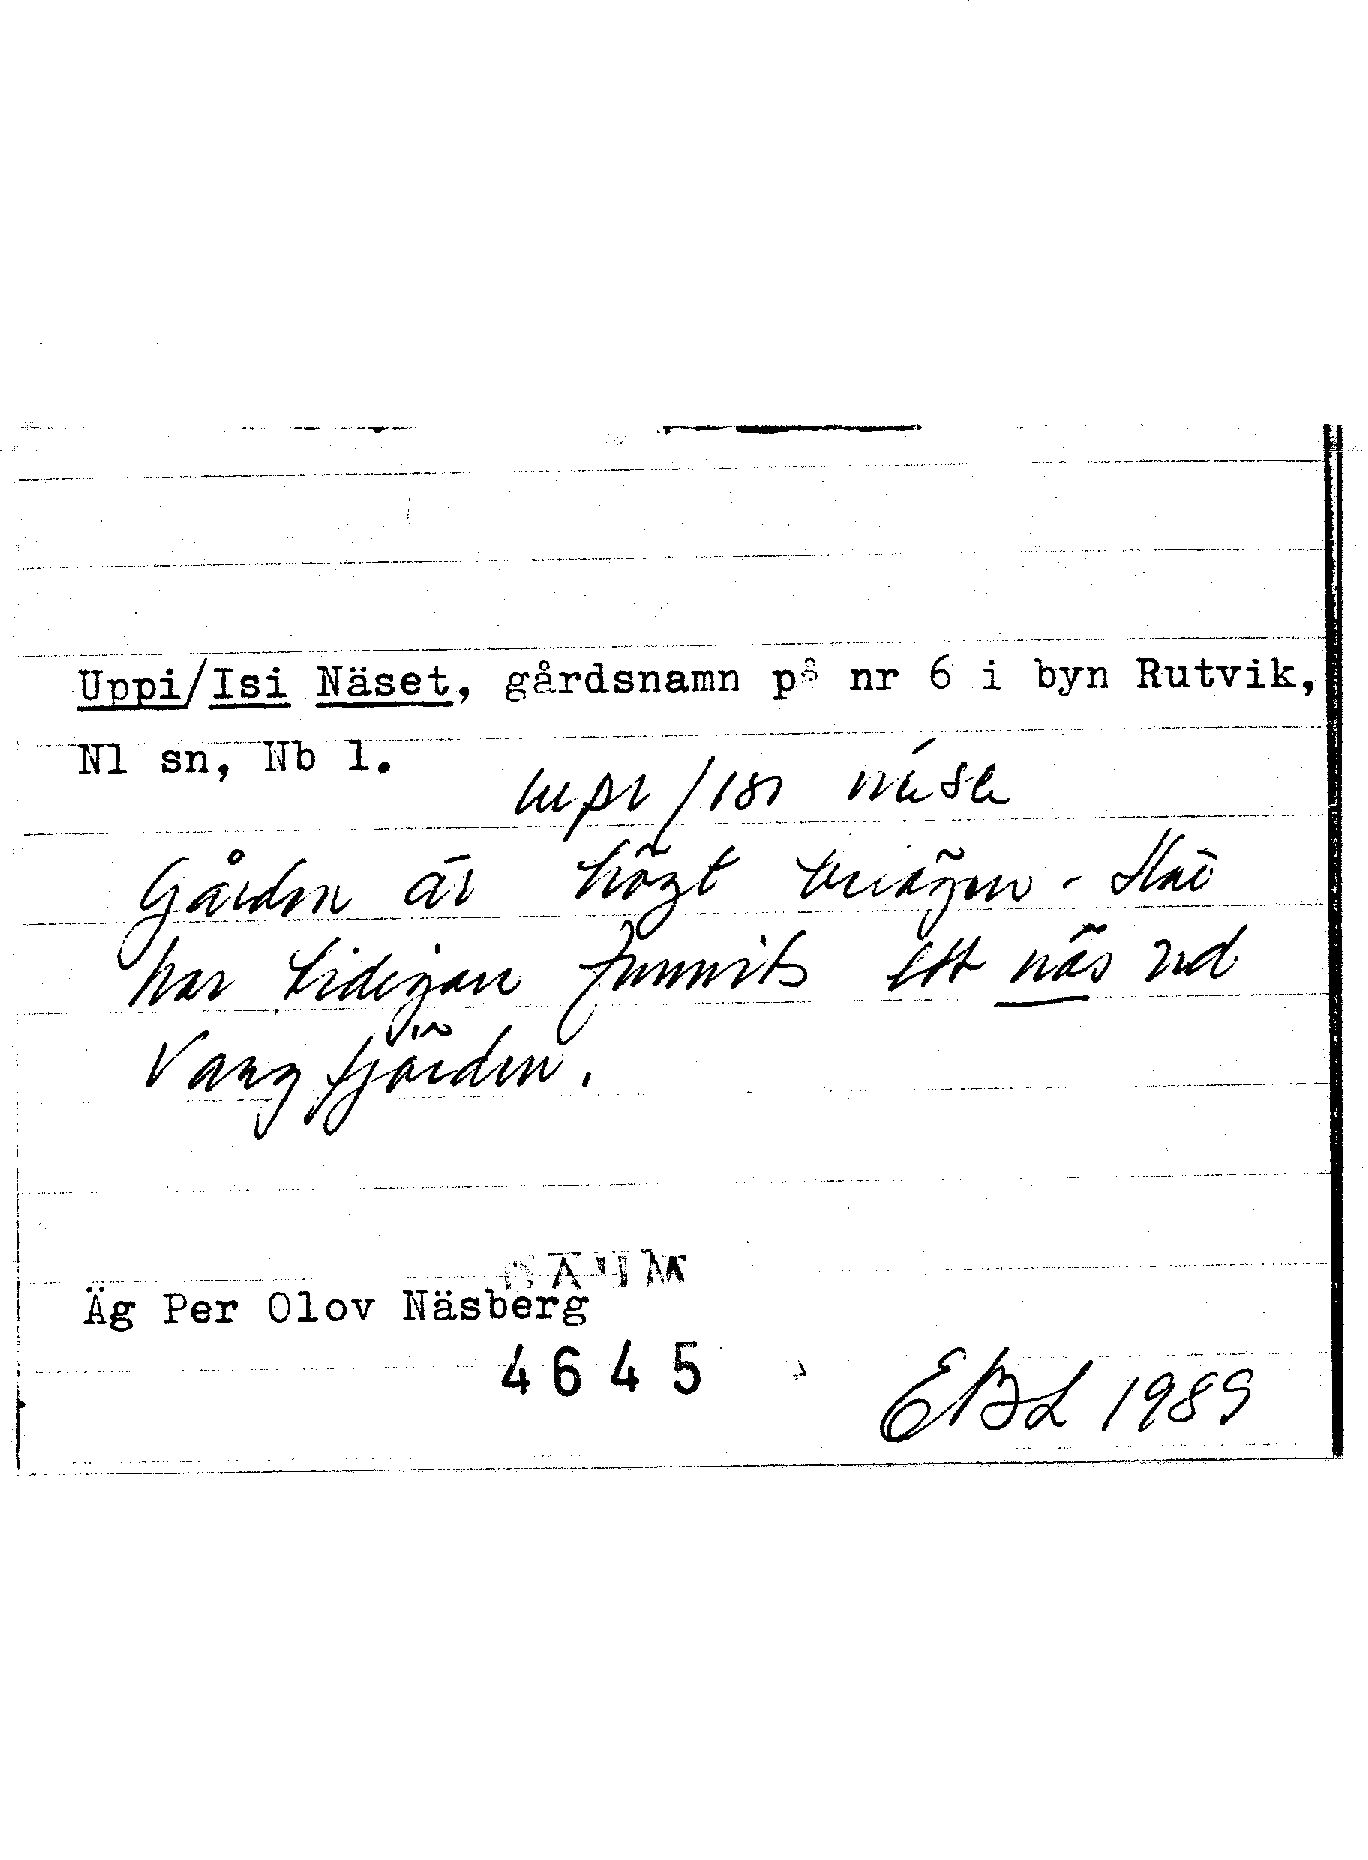 Uppi/Isi Näset, gårdsnamn på nr 6 i byn Rutvik,
Nl sn, Nb l.
uppi /isi
Gården är högt belägen. Här
har tidigare funnits ett näs vid
fjärden.
DAUM
Äg Per Olov Näsberg
4645
EBL 1989